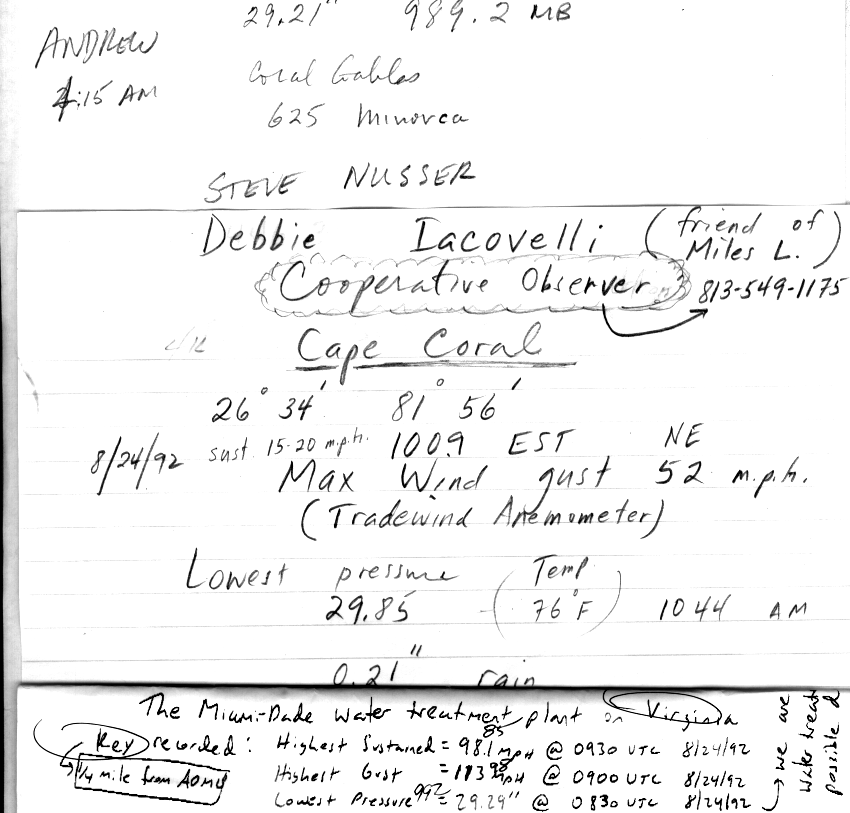 29.21" 989.2 MB
ANDREW
Coral Gables
4:15 AM
625 Minorca
STEVE NUSSER
Debbie Iacovelli (friend of Miles L.)
Cooperative Observer 813-549-1175
Cape Coral
26° 34' 81° 56'
8/24/92 sust. 15-20 m.p.h. 1009 EST NE
Max Wind gust 52 m.p.h.
(Tradewind Anemometer)
Lowest pressure (Temp
29.85 76°F) 1044 AM
0.21" rain
The Miami-Dade water treatment plant on Virginia
Key recorded: Highest Sustained = 98.1 mpH 85 @ 0930 UTC 8/24/92
1/4 mile from AOML Highest Gust = 113 mpH 98 @ 0900 UTC 8/24/92
Lowest Pressure 992 = 29.29" @ 0830 UTC 8/24/92
we are
water treat
possible d